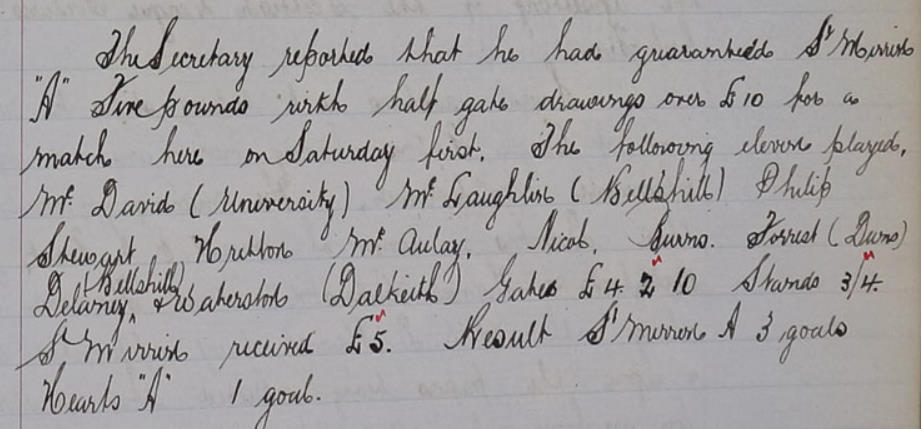 The Secretary reported that he had guaranteed St Mirren
"A" Five pounds with half gate drawings over £10 for a
match here on Saturday first. The following eleven played.
Mc David (University) Mc Laughlin (Bellshill) Philip
Stewart Mc Aulay, Nicol, Burns. Forrest (Duns)
Delaney, (Bellshill) & Waterston (Dalkeith) Gates £4. 2 10 Stands 3/4.
St Mirren received £5. Result St Mirren A 3 goals
Hearts "A" 1 goal.